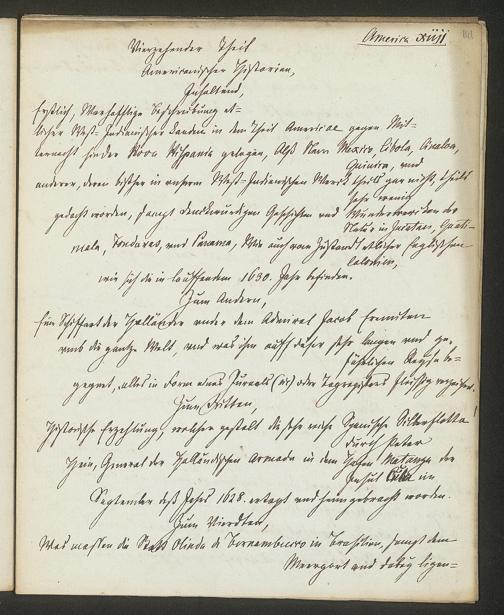 America XIIII
Vierzehender Theil
Americanischer Historien,
Inhaltend,
Erstlich, Warhafftige Beschreibung et-
licher West-Indianischer Landen in dem Theil Americae gegen Mit-
ternacht hinder Nova Hispania gelegen, Alß New Mexico, Cibola, Cinaloa,
Quivira, und
anderer, deren bißher in unserm West-Indianischen Werck theils gar nicht, theils
sehr wenig
gedacht worden, sampt denckwürdigen Geschichten und Wunderwercken der
Natur in Jucatan, Guati-
mala, Fonduras, und Panama, Wie auch vom Zustandt etlicher Englischen
Colonien,
wie sich die in lauffendem 1630. Jahr befinden.
Zum Andern,
Ein Schiffart der Holländer under dem Admiral Jacob Eremiten
umb die gantze Welt, und was ihm auff dieser sehr langen und ge-
fährlichen Reyse be-
gegnet, alles in Form eines Jurnals (sic) oder Tagregisters fleissig verzeichnet.
Zum Dritten,
Historische Erzehlung, welcher gestalt die sehr reiche Spanische Silberflotta
durch Peter
Hein, General der Holländischen Armada in dem Hafen Matanza der
Insul Cuba im
September deß Jahrs 1628. ertapt und heimgebracht worden.
Zum Vierdten,
Was massen die Statt Olinda de Pernambucco in Brasilien, sampt dem
Meerport und dabey ligen-